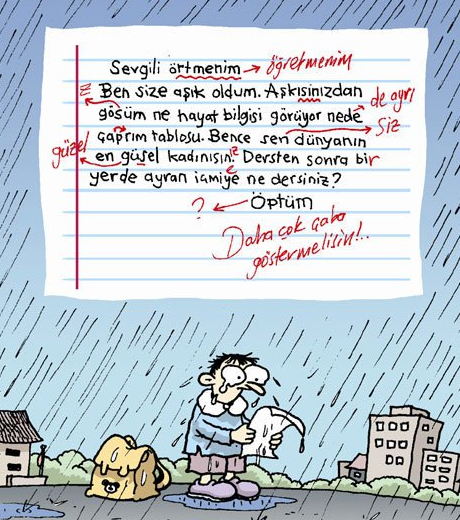 Sevgili örtmenim → öğretmenim
z Ben size aşık oldum. Aşkısinızdan
gösüm ne hayat bilgisi görüyor nede de ayrı
çaprım tablosu. Bence sen dünyanın siz
güzel en güsel kadınısın. iz Dersten sonra bir
yerde ayran içmiye e ne dersiniz?
? ← Öptüm
Daha çok çaba
göstermelisin!..